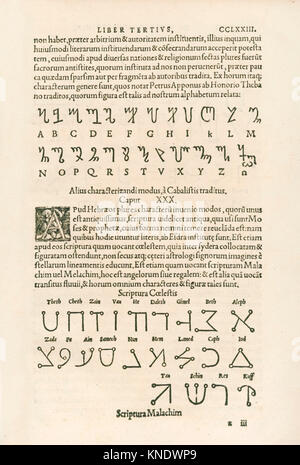 LIBER TERTIVS, CCLXXIII.
non habet, præter arbitrium & autoritatem instituentis, illius inquam, qui
huiusmodi literarum instituendarum & cõsecrandarum acceperit potesta
tem, cuiusmodi apud diversas nationes & religionum sectas plures fuerũt
characterum antistites, quorum instituta ad nos non
paucaq; sparsim per fragmẽta ab autoribus tradita. Ex horum itaq;
characterum genere sunt, quos notat Petrus Apponus ab Honorio Theba
no traditos, quorum figura est talis ad nostrum alphabetum relata:
A B C D E F G H I K L M
N O P Q R S T V X Y Z Ω
Alius characterizandi modus, à Cabalistis traditus.
Caput XXX.
APud Hebræos plures characterum inuenio modos, quorũ unus
est antiquissimus, scriptura uidelicet antiqua, qua usi sunt Mo
ses & prophetæ, cuius non reuelanda est: nam
quibus hodie utuntur literis, ab Esdra institutæ sunt. Est etiam
apud eos scriptura quam uocant cœlestem, quia inter sydera collocatam &
figuratam ostendunt, non secus atq; cæteri astrologi signorum imagines è
stellarum lineamentis educunt. Est etiam quam uocant scripturam Mala
chim uel Melachim, hoc est angelorum siue regalem: & est alia quã uocãt
transitus fluuii, & horum omnium characteres & figuræ tales sunt.
Scriptura Cœlestis
Theth Cheth Zain Vau He Daleth Gimel Beth Aleph
Zade Pe Ain Samech Nun Mem Lamed Caph Iod
Tau Schin Res Kuff
Scriptura Malachim
z iii
KNDWP9